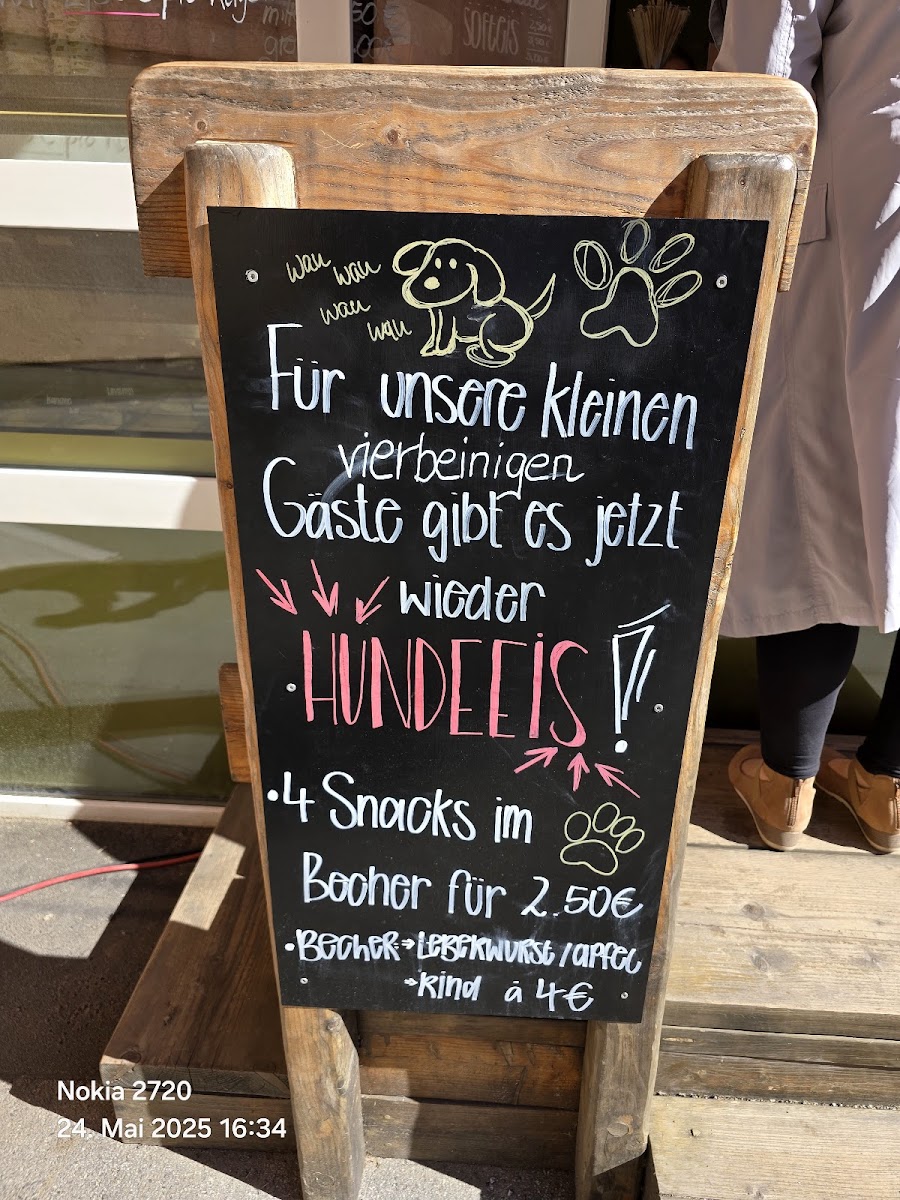 SOFTEIS
wau
wau
wau
wau
Für unsere kleinen
vierbeinigen
Gäste gibt es jetzt
wieder
HUNDEEIS!
•4 Snacks im
Becher für 2.50€
•BECHER→LEBERWURST/APFEL
→Rind à 4€
Nokia 2720
24. Mai 2025 16:34